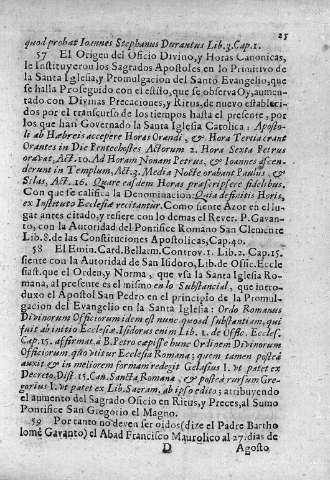 25
quod probat Ioannes Stephanus Durantus Lib.3.Cap.1.
57 El Origen del Oficio Divino, y Horas Canonicas,
le Instituyeron los Sagrados Apostoles en lo Primitivo de
la Santa Iglesia, y Promulgacion del Santo Evangelio, que
se halla Proseguido con el estilo, que se observa Oy, aumen-
tado con Divinas Precaciones, y Ritus, de nuevo estableci-
dos por el transcurso de los tiempos hasta el presente, por
los que hàn Governado la Santa Iglesia Catolica: Aposto-
li ab Hæbreis accepere Horas Orandi, & Hora Tertia erant
Orantes in Die Pentechostes Actorum 2. Hora Sexta Petrus
orabat, Act.10. Ad Horam Nonam Petrus, & Ioannes ascen-
derunt in Templum, Act.3. Media Nocte orabant Paulus, &
Silas, Act.16. Quare easdem Horas præscripsere fidelibus.
Con que se califica la Denominacion: Quia definitis Horis,
ex Instituto Ecclesiæ recitantur. Como siente Azor en el lu-
gar antes citado, y refiere con lo demas el Rever. P. Gavan-
to, con la Autoridad del Pontifice Romano San Clemente
Lib.8. de las Constituciones Apostolicas, Cap.40.
58 El Emin. Card. Bellarm. Controv. 1. Lib. 2. Cap. 15.
siente con la Autoridad de San Isidoro, Lib. de Offic. Eccle
siast. que el Orden, y Norma, que vsa la Santa Iglesia Ro-
mana, al presente es el mismo en lo Substancial, que intro-
duxo el Apostol San Pedro en el principio de la Promul-
gacion del Evangelio en la Santa Iglesia: Ordo Romanus
Divinorum Officiorum idem est nunc quoad substantiam, qui
fuit ab initio Ecclesiæ. Isidorus enim Lib. 1. de Offic. Eccles.
Cap. 15. affirmat, a B. Petro cæpisse hunc Ordinem Divinorum
Officiorum, quo vtitur Ecclesia Romana; quem tamen postea
auxit & in meliorem formam redegit Gelasius I. vt patet ex
Decreto. Dist. 15. Can. Sancta Romana, & postea rursum Gre-
gorius I. vt patet ex Lib. Sacram. ab ipso edito; atribuyendo
el aumento del Sagrado Oficio en Ritus, y Preces, al Sumo
Pontifice San Gregorio el Magno.
59 Por tanto no deven ser oidos (dize el Padre Bartho
lomè Gavanto) el Abad Francisco Maurolico al 27. dias de
D Agosto